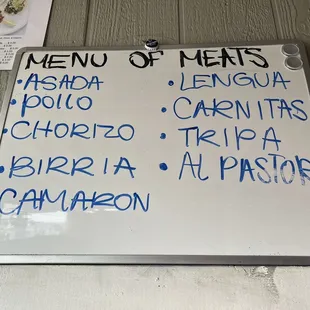 MENU OF MEATS
• ASADA
• POLLO
• CHORIZO
• BIRRIA
CAMARON
• LENGUA
• CARNITAS
• TRIPA
• AL PASTOR